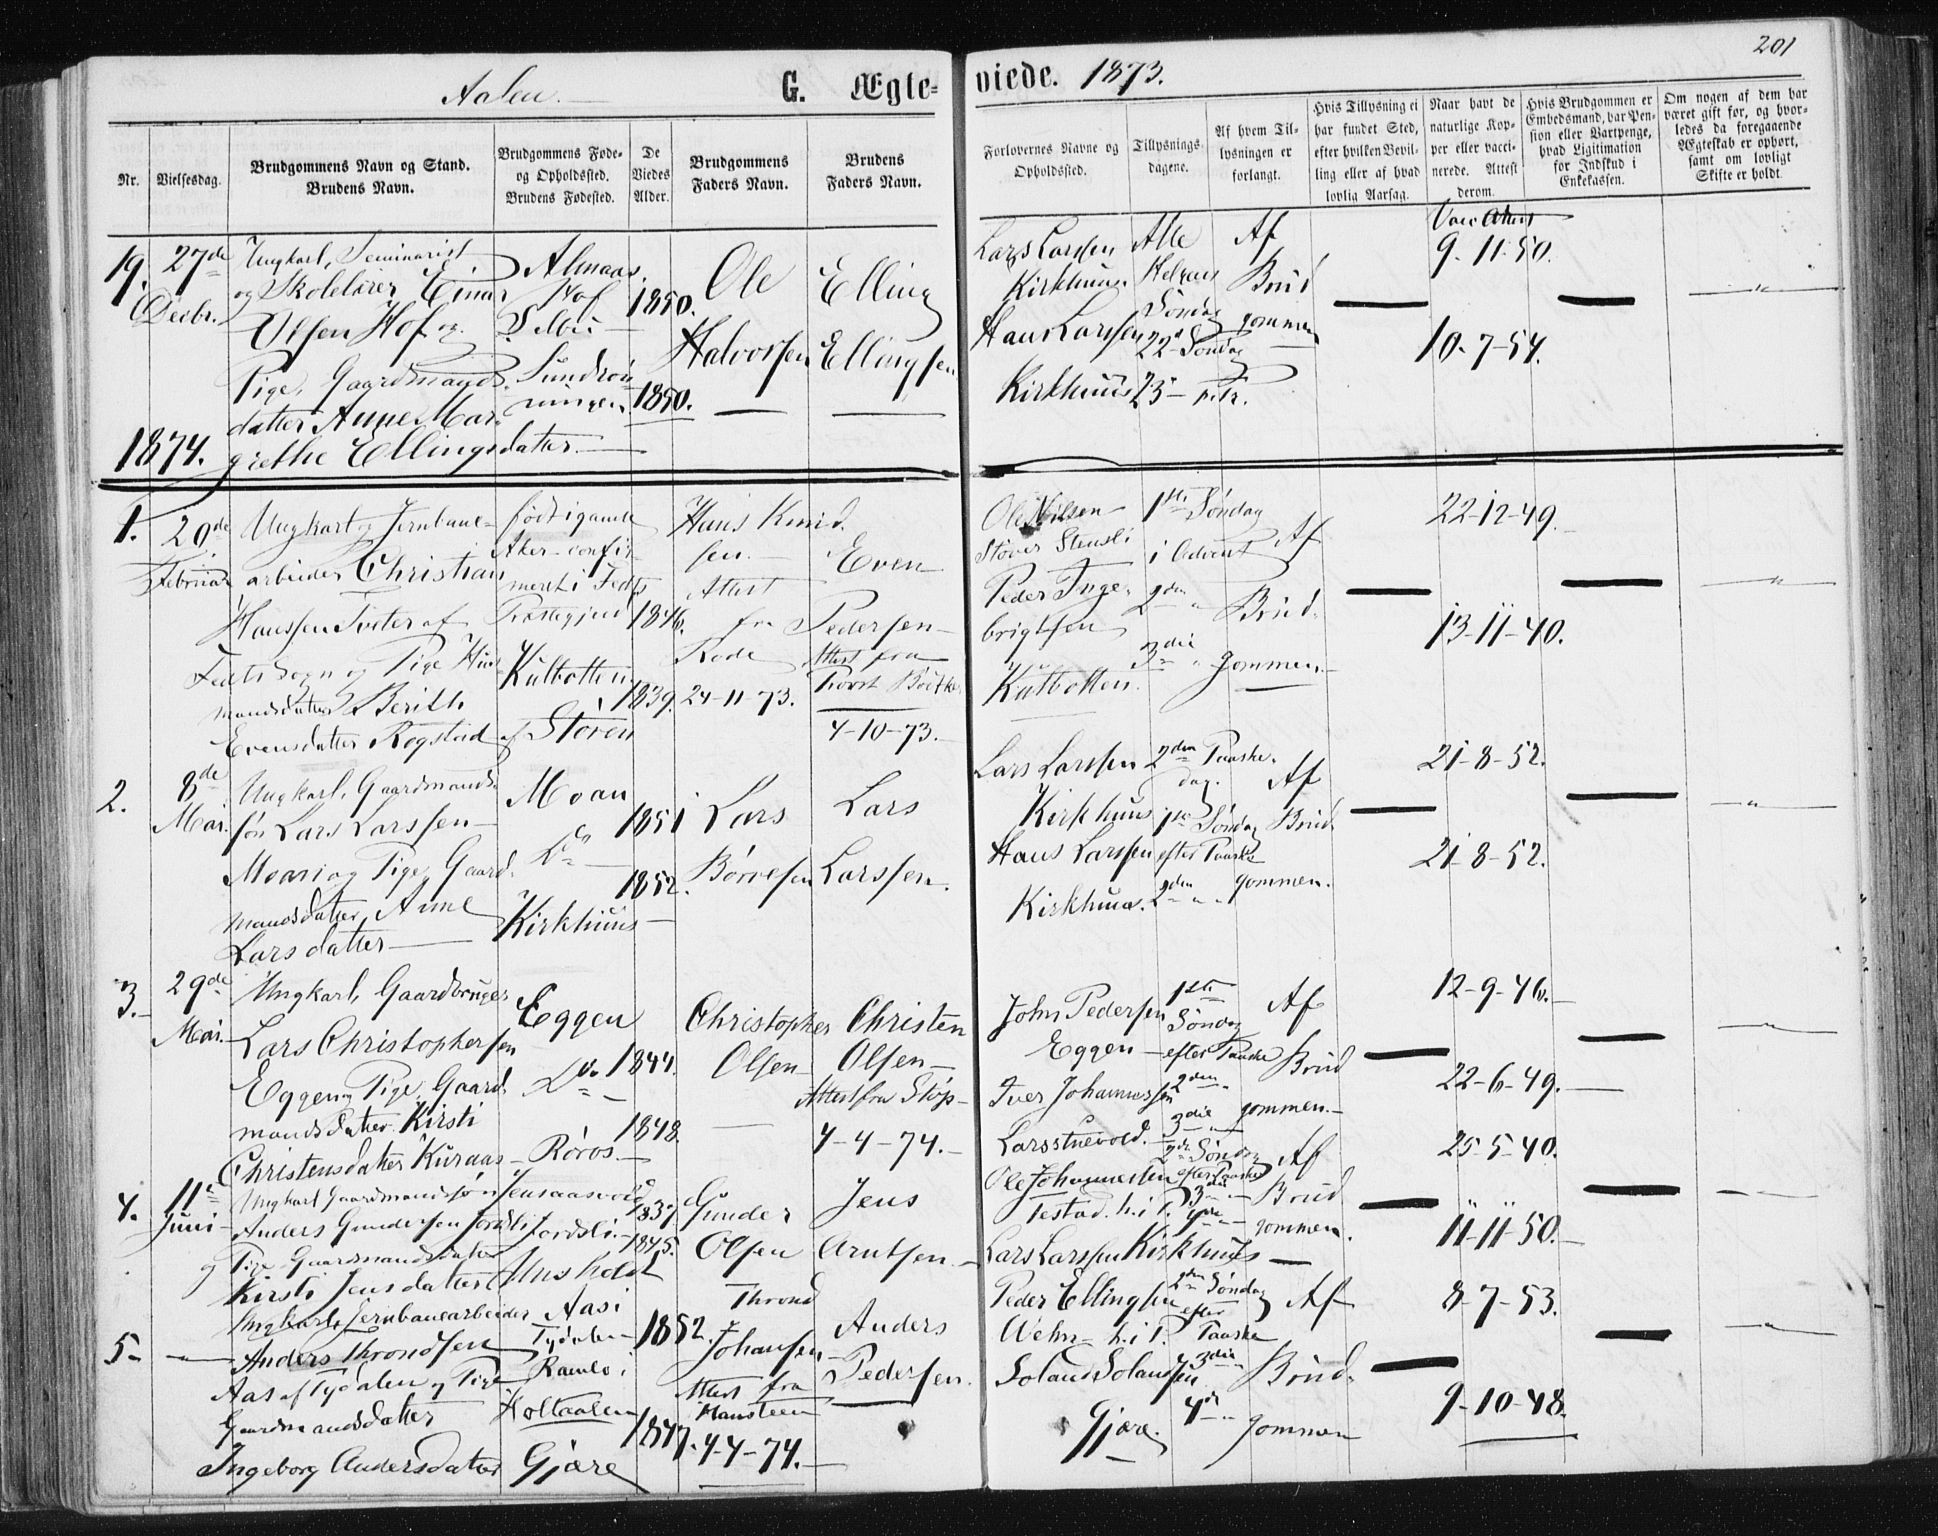 201
Aalen. G. Ægte-viede. 1873.
Nr.
Vielsesdag.
Brudgommens Navn og Stand.
Brudens Navn.
Brudgommens Føde-
og Opholdssted.
Brudens Fødested.
De
Viedes
Alder.
Brudgommens
Faders Navn.
Brudens
Faders Navn.
Forlovernes Navne og
Opholdssted.
Tillysnings-
dagene.
Af hvem Til-
lysningen er
forlangt.
Hvis Tillysning ei
har fundet Sted,
efter hvilken Bevil-
ling eller af hvad
lovlig Aarsag.
Naar havt de
naturlige Kop-
per eller vacci-
nerede. Attest
derom.
Hvis Brudgommen er
Embedsmand, har Pen-
sion eller Vartpenge,
hvad Ligitimation
for Indskud i
Enkekassen.
Om nogen af dem har
været gift før, og hvor-
ledes da foregaaende
Ægteskab er ophørt,
samt om lovligt
Skifte er holdt.
19. 27de Decbr.
Ungkarl, Seminarist
og Skolelærer Einar
Olsen Hof og
Pige, Gaardmands-
datter Anne Mar-
grethe Ellingsdatter
Aalmaas
Hof
Selbu
1850.
1850.
Ole
Halvorsen
Elling
Ellingsen
Lars Larssen
Kirkhuus
Hans Larssen
Kirkhuus
Alle
Helgens
Søndag
22 Søndag
23
Af
Brud
gommen
Vacc Attest
9-11-50.
10-7-54.
1874.
1. 20de Februar
Ungkarl og Jernbane-
arbeider Christian
Hanssen Tveter af
Feets Sogn og Pige Huus
mandsdatter Berith
Evensdatter Rogstad
født i gamle
Aker - confir
meret i Feets
Præstegjeld
Kulbotten
af Støren
1846.
1839.
Hans Knud
sen
Attest
fra
Rode
24-11-73.
Even
Pedersen
Attest fra
Provst
4-10-73.
Ole Nilsen
Støver Stensli
Peder Inge-
brigtsen
Kulbotten.
1ste Søndag
i Advent
2den
3die
Af
Brud-
gommen
22-12-49.
13-11-40.
2. 8de Mai.
Ungkarl, Gaardmands-
søn Lars Larssen
Moan og Pige, Gaard-
mandsdatter Anne
Larsdatter
Moan
Do
Kirkhuus
1851
1852.
Lars
Børresen
Lars
Larssen.
Lars Larssen
Kirkhuus
Hans Larssen
Kirkhuus.
2den Paaske-
dag.
1ste Søndag
efter Paaske
2den
Af
Brud-
gommen.
21-8-52.
21-8-52.
3. 29de Mai.
Ungkarl, Gaardbruger
Lars Christophersen
Eggen og Pige, Gaard-
mandsdatter Kirsti
Christensdatter Kuraas
Eggen
Do
Røros.
1844.
1848.
Christopher
Olsen
Christen
Olsen
Attest fra
4-4-74.
John Pedersen
Eggen
Iver Johannessen
Larsstuevold.
1ste
Søndag
efter Paaske
2den
3die
Af
Brud
gommen.
12-9-46.
22-6-49.
4. 11te Juni
Ungkarl Gaardmandssøn
Anders Gundersen Jordsli
og Pige Gaardmandsdatter
Kirsti Jensdatter
Jensaasvold
Jordsli
Unsholdt
1837
1845.
Gunder
Olsen
Jens
Arntsen
Ole Johannessen
h.i P.
Lars Larssen Kirkhuus
2den Søndag
efter Paaske
3die
Af
Brud
gommen.
25-5-40.
11-11-50.
5.
Ungkarl, Jernbanearbeider
Anders Throndsen
Aas af Tydalen og Pige
Gaardmandsdatter
Ingeborg Andersdatter
Aas i
Tydalen
i
Holtaalen
Gjære
1852.
1847.
Thrond
Johansen
Attest fra
Hansteen
4-4-74.
Anders
Pedersen.
Peder Ellingsen
Wehn h.i P.
Gjære.
2den Søndag
efter
Paaske
3die
4de
Af
Brud-
gommen
8-7-53.
9-10-48.